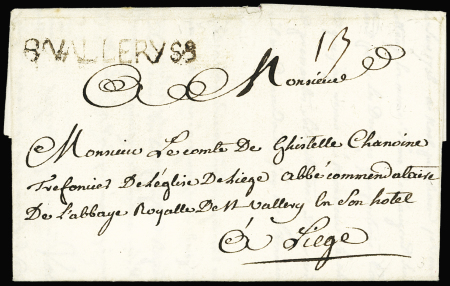 S.VALLERY SS
13
A Monsieur
Monsieur Le comte De Ghistelle Chanoine
Trefoncier De L'église De Liege abbé commendataire
De L'abbaye Royalle De St Vallery En Son hotel
A Liege